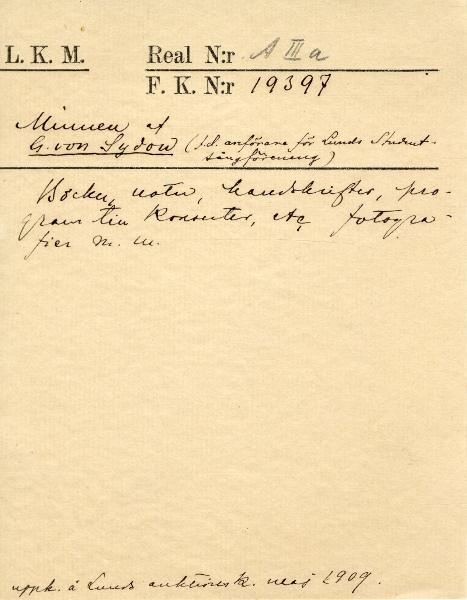 L. K. M. Real N:r A III a
F. K. N:r 19397
Minnen af
G. von Sydow (f.d. anförare för Lunds Student-
sångförening)
Böcker, noter, handskrifter, pro-
gram till konserter, etc fotogra-
fier m. m.
uppk. å Lunds auktionsk. maj 1909.